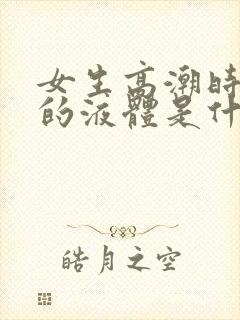 女生高潮時
的液體是什
皓月之空